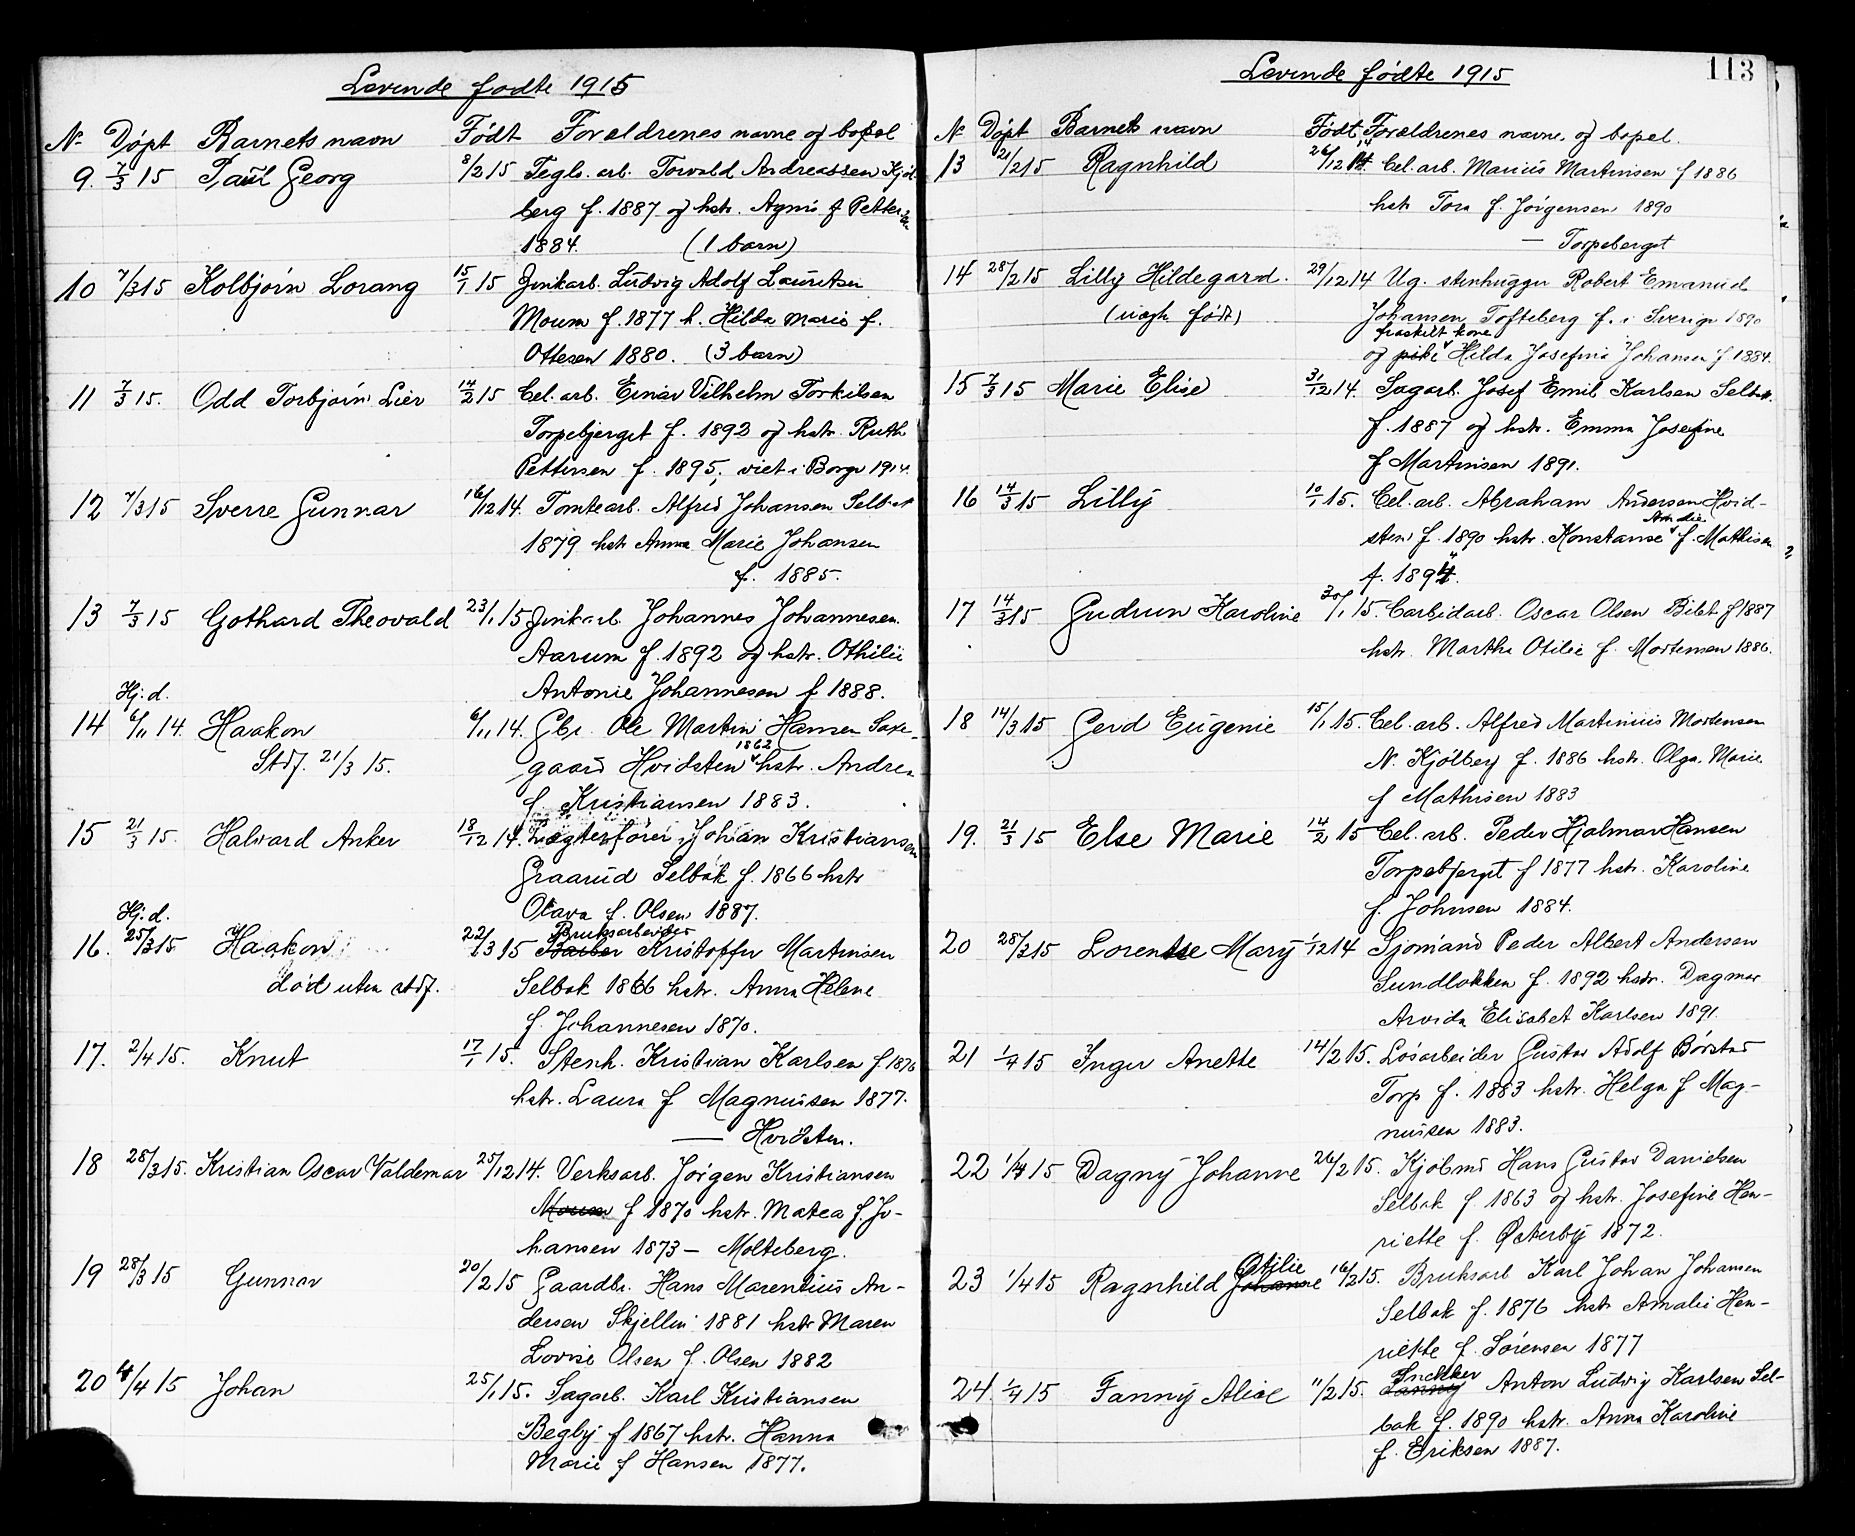 Levende fødte 1915
Nr Døpt Barnets navn Født Forældrenes navne og bopæl
9. 7/3 15 Paul Georg 8/2 15 Teglv. arb. Torvald Andreassen Kjøl-
berg f. 1887 og hstr. Agnes f Petter-
sen 1884. (1 barn)
10 7/3 15 Kolbjørn Lorang 15/1 15 Zinkarb. Ludvig Adolf Lauritsen
Moum f. 1877 h. Hilda Marie f.
Ottesen 1880. (3 barn)
11 7/3 15. Odd Torbjørn Lier 14/2 15 Cel. arb. Einar Vilhelm Torkilsen
Torpebjerget f. 1892 og hstr. Ruth
Pettersen f. 1895, viet i Borge 1914.
12 7/3 15 Sverre Gunnar 16/12 14. Tomtearb. Alfred Johansen Selbak
1879 hstr Anna Marie Johansen
f. 1885.
13 7/3 15 Gothard Theovald 23/1 15 Zinkarb. Johannes Johannesen
Aarum f. 1892 og hstr. Othilie
Antonie Johannesen f 1888.
Hj. d.
14 6/11 14. Haakon 6/11 14. Gbr. Ole Martin Hansen Saxe-
Stdf. 21/3 15. gaard Hvidsten 1862 hstr. Andrea
f. Kristiansen 1883.
15 21/3 15. Halvard Anker 18/12 14. Lægterfører Johan Kristiansen
Graarud Selbak f. 1866 hstr
Olava f. Olsen 1887.
Hj. d. Bruksarbeider
16. 25/3 15 Haakon 22/3 15 Kristoffer Martinsen
død uten stdf. Selbak 1866 hstr. Anna Helene
f. Johannesen 1870.
17. 2/4 15. Knut 17/1 15. Stenh. Kristian Karlsen f. 1876
hstr. Laura f Magnussen 1877.
— Hvidsten.
18 28/3 15. Kristian Oscar Valdemar 25/12 14. Verksarb. Jørgen Kristiansen
Moum f 1870 hstr. Matea f Jo-
hansen 1873 — Molteberg.
19 28/3 15 Gunnar 20/2 15 Gaardbr. Hans Marentius An-
dersen Skjellin 1881 hstr Maren
Lovise Olsen f. Olsen 1882
20 4/4 15 Johan 25/1 15. Sagarb. Karl Kristiansen
Begby f 1867 hstr. Hanna
Marie f Hansen 1877.
Levende fødte 1915 113
Nr Døpt Barnets navn Født Forældrenes navne og bopæl.
13 21/2 15 Ragnhild 26/12 14 Cel. arb. Marius Martinsen f 1886
hstr Tora f. Jørgensen 1890
— Torpeberget
14 28/2 15 Lilly Hildegard. 29/12 14 Ug. stenhugger Robert Emanuel
(uægte født) Johansen Tofteberg f. i Sverige 1890
fraskilt kone
og pike Hilda Josefine Johansen f 1884.
15 7/3 15 Marie Elise 31/12 14. Sagarb. Josef Emil Karlsen Selbak.
f. 1887 og hstr. Emma Josefine
f Martinsen 1891.
16 14/3 15 Lilly 10/1 15. Cel. arb. Abraham Andersen Hvid-
Amalie
sten f. 1890 hstr. Konstanse f. Mathisen
f. 1894.
17 14/3 15 Gudrun Karoline 30/1 15. Carbidarb. Oscar Olsen Bilet f 1887
hstr. Martha Otilie f. Mortensen 1886.
18 14/3 15 Gerd Eugenie 15/1 15. Cel. arb. Alfred Martinius Mortensen
N. Kjölberg f. 1886 hstr. Olga Marie
f Mathisen 1883
19. 21/3 15 Else Marie 14/2 15 Cel. arb. Peder Hjalmar Hansen
Torpebjerget f 1877 hstr. Karoline
f. Johnsen 1884.
20 28/3 15 Lorentse Mary 1/12 14 Sjømand Peder Albert Andersen
Sundløkken f. 1892 hstr. Dagmar
Arvida Elisabet Karlsen 1891
21 1/4 15 Inger Anette 14/2 15. Løsarbeider Gustav Adolf Børstad
Torp f. 1883 hstr. Helga f Mag-
nussen 1883.
22 1/4 15 Dagny Johanne 26/2 15. Kjøbmd Hans Gustav Danielsen
Selbak f. 1863 og hstr. Josefine Hen-
riette f. Østerby 1872.
Otilie
23 1/4 15 Ragnhild Johanne 16/2 15. Bruksarb Karl Johan Johansen
Selbak f. 1876 hstr Amalie Hen-
riette f. Sørensen 1877
Snekker
24. 1/4 15 Fanny Alice 11/2 15. Anton Ludvig Karlsen Sel-
bak f. 1890 hstr. Anna Karoline
f. Eriksen 1887.